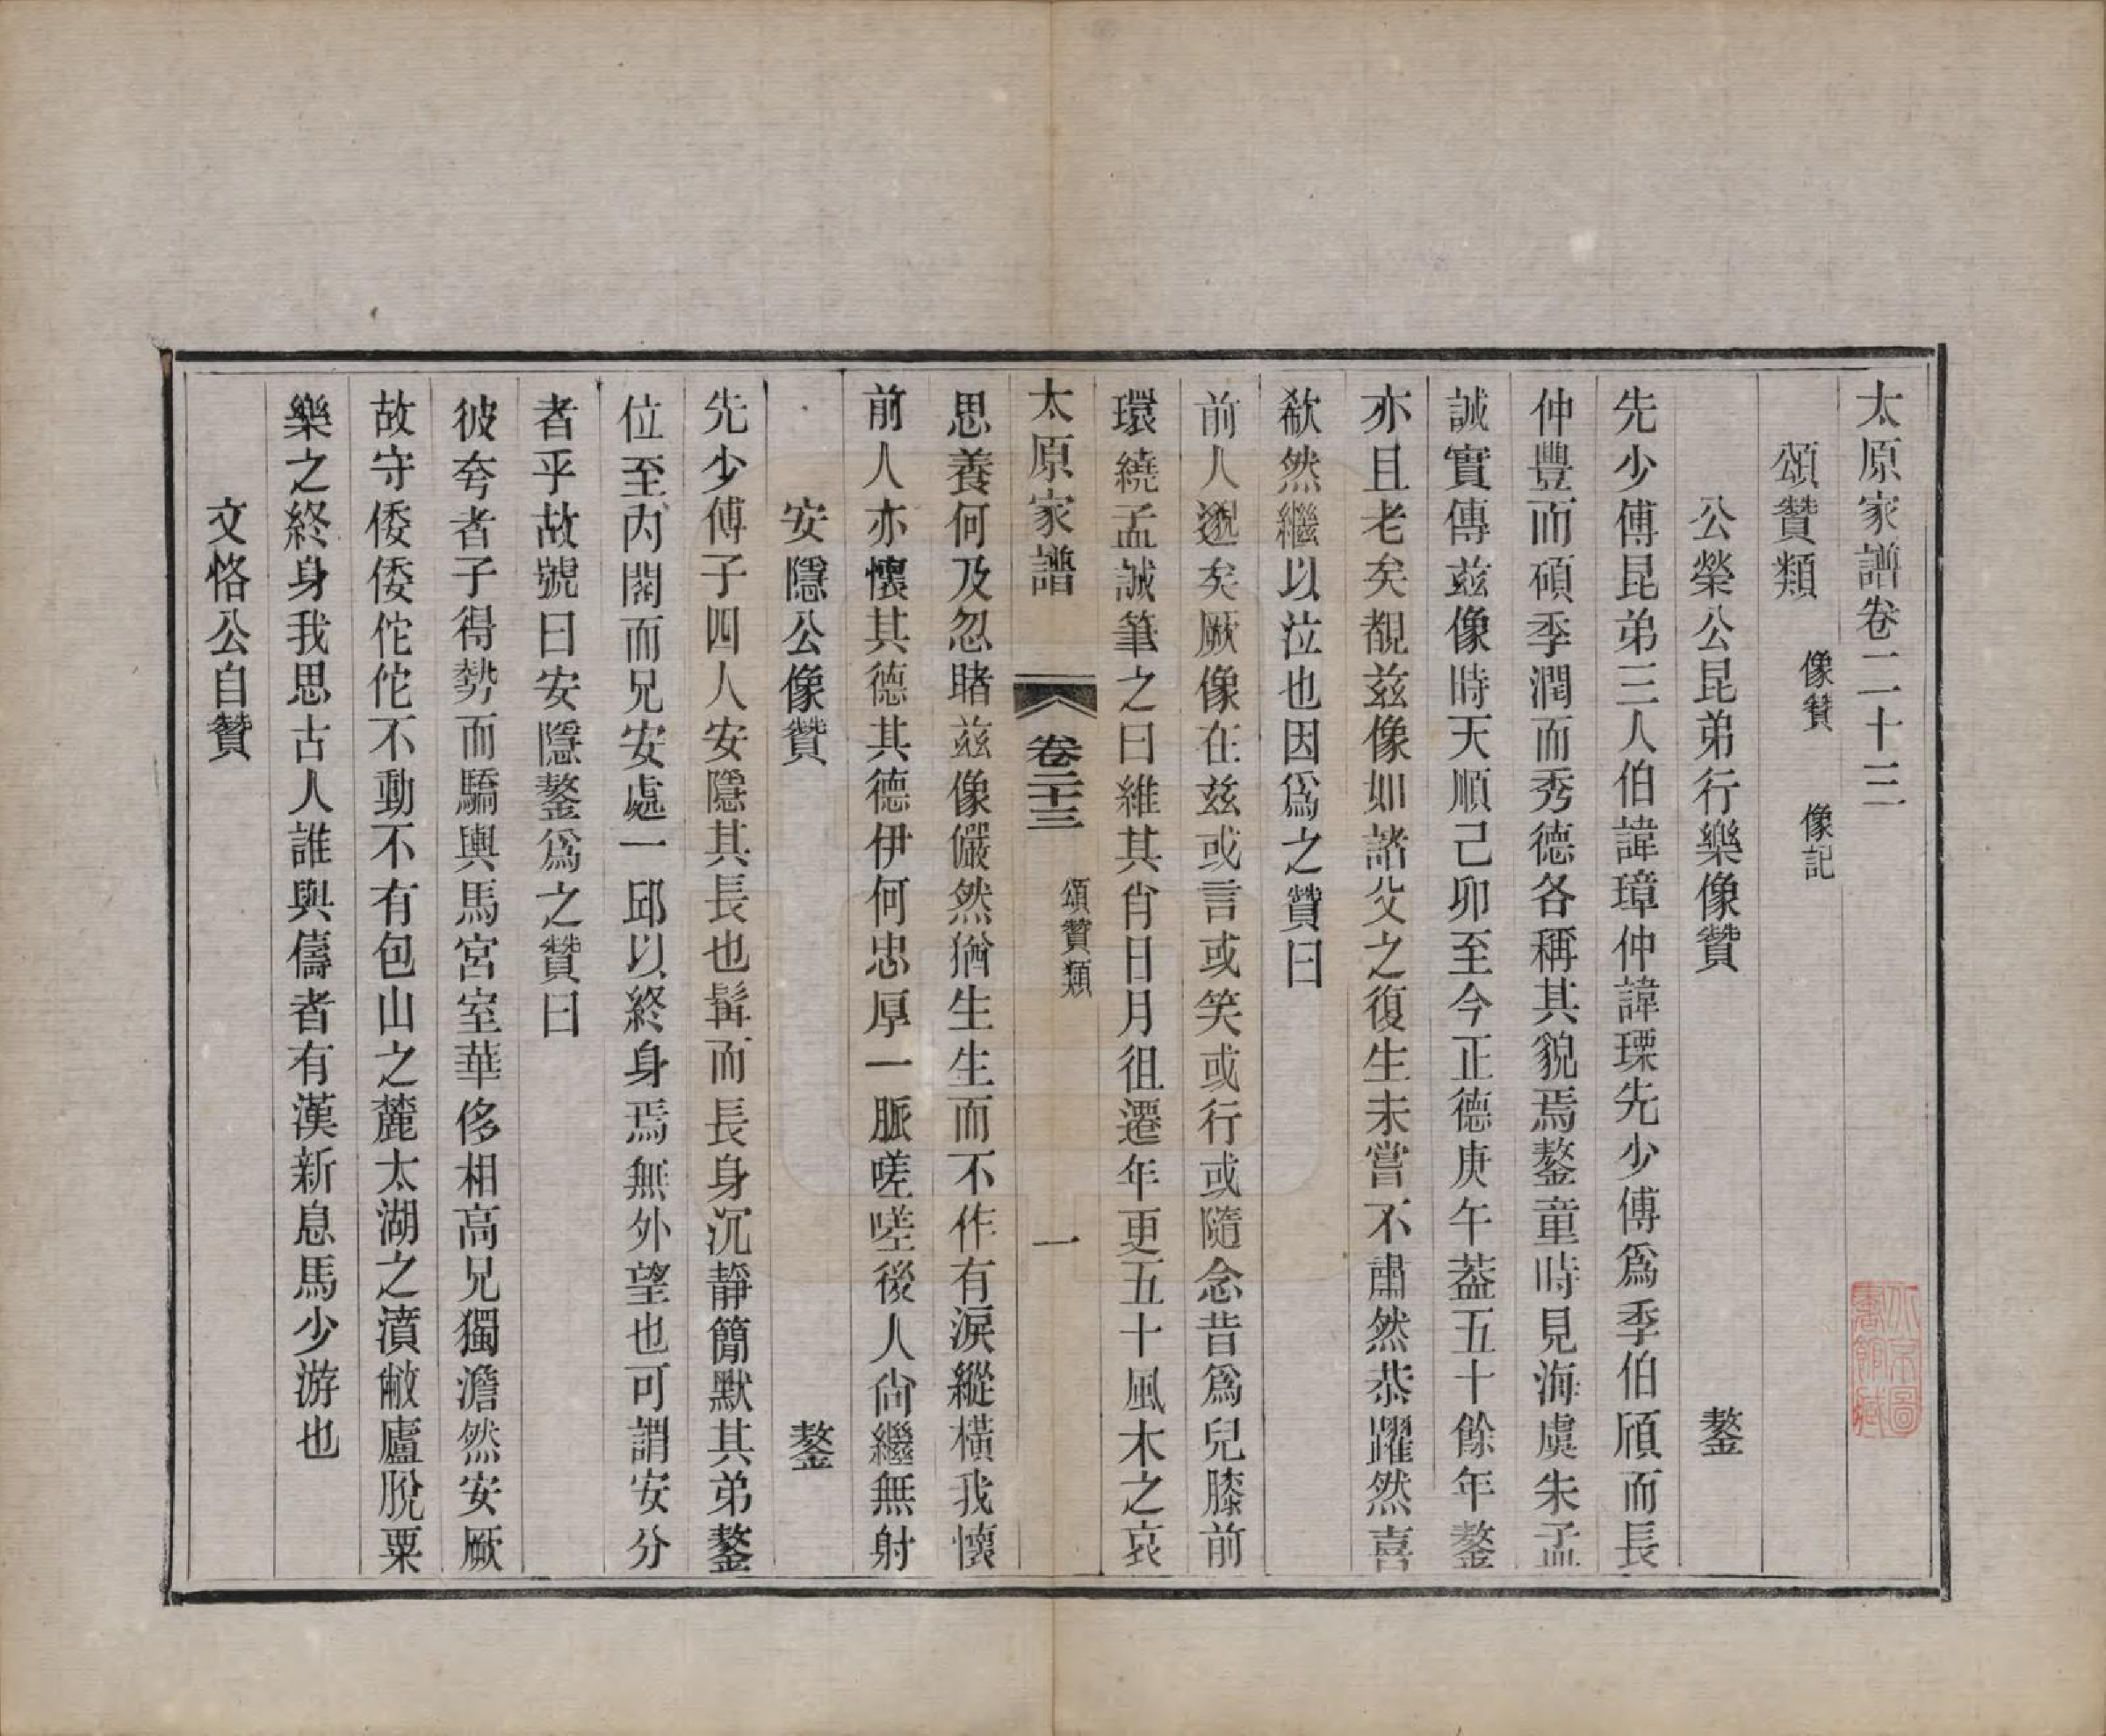 太原家譜卷二十三
頌贊類　像贊　像記
公榮公昆弟行樂像贊　鏊
先少傅昆弟三人伯諱璋仲諱瑮先少傅爲季伯頎而長
仲豐而碩季潤而秀德各稱其貌焉鏊童時見海虞朱孟
誠實傳兹像時天順己卯至今正德庚午葢五十餘年鏊
亦且老矣覩兹像如諸父之復生未嘗不肅然恭躍然喜
欷然繼以泣也因爲之贊曰
前人邈矣厥像在兹或言或笑或行或隨念昔爲兒膝前
環繞孟誠筆之曰維其肖日月徂遷年更五十風木之哀
太原家譜　卷二十三　頌贊類　一
思養何及忽睹兹像儼然猶生生而不作有淚縱橫我懷
前人亦懷其德其德伊何忠厚一脈嗟嗟後人尙繼無射
安隱公像贊　鏊
先少傅子四人安隱其長也髯而長身沉靜簡默其弟鏊
位至內閣而兄安處一邱以終身焉無外望也可謂安分
者乎故號曰安隱鏊爲之贊曰
彼夸者子得勢而驕輿馬宮室華侈相高兄獨澹然安厥
故守倭倭佗佗不動不有包山之麓太湖之濆敝廬脫粟
樂之終身我思古人誰與儔者有漢新息馬少游也
文恪公自贊